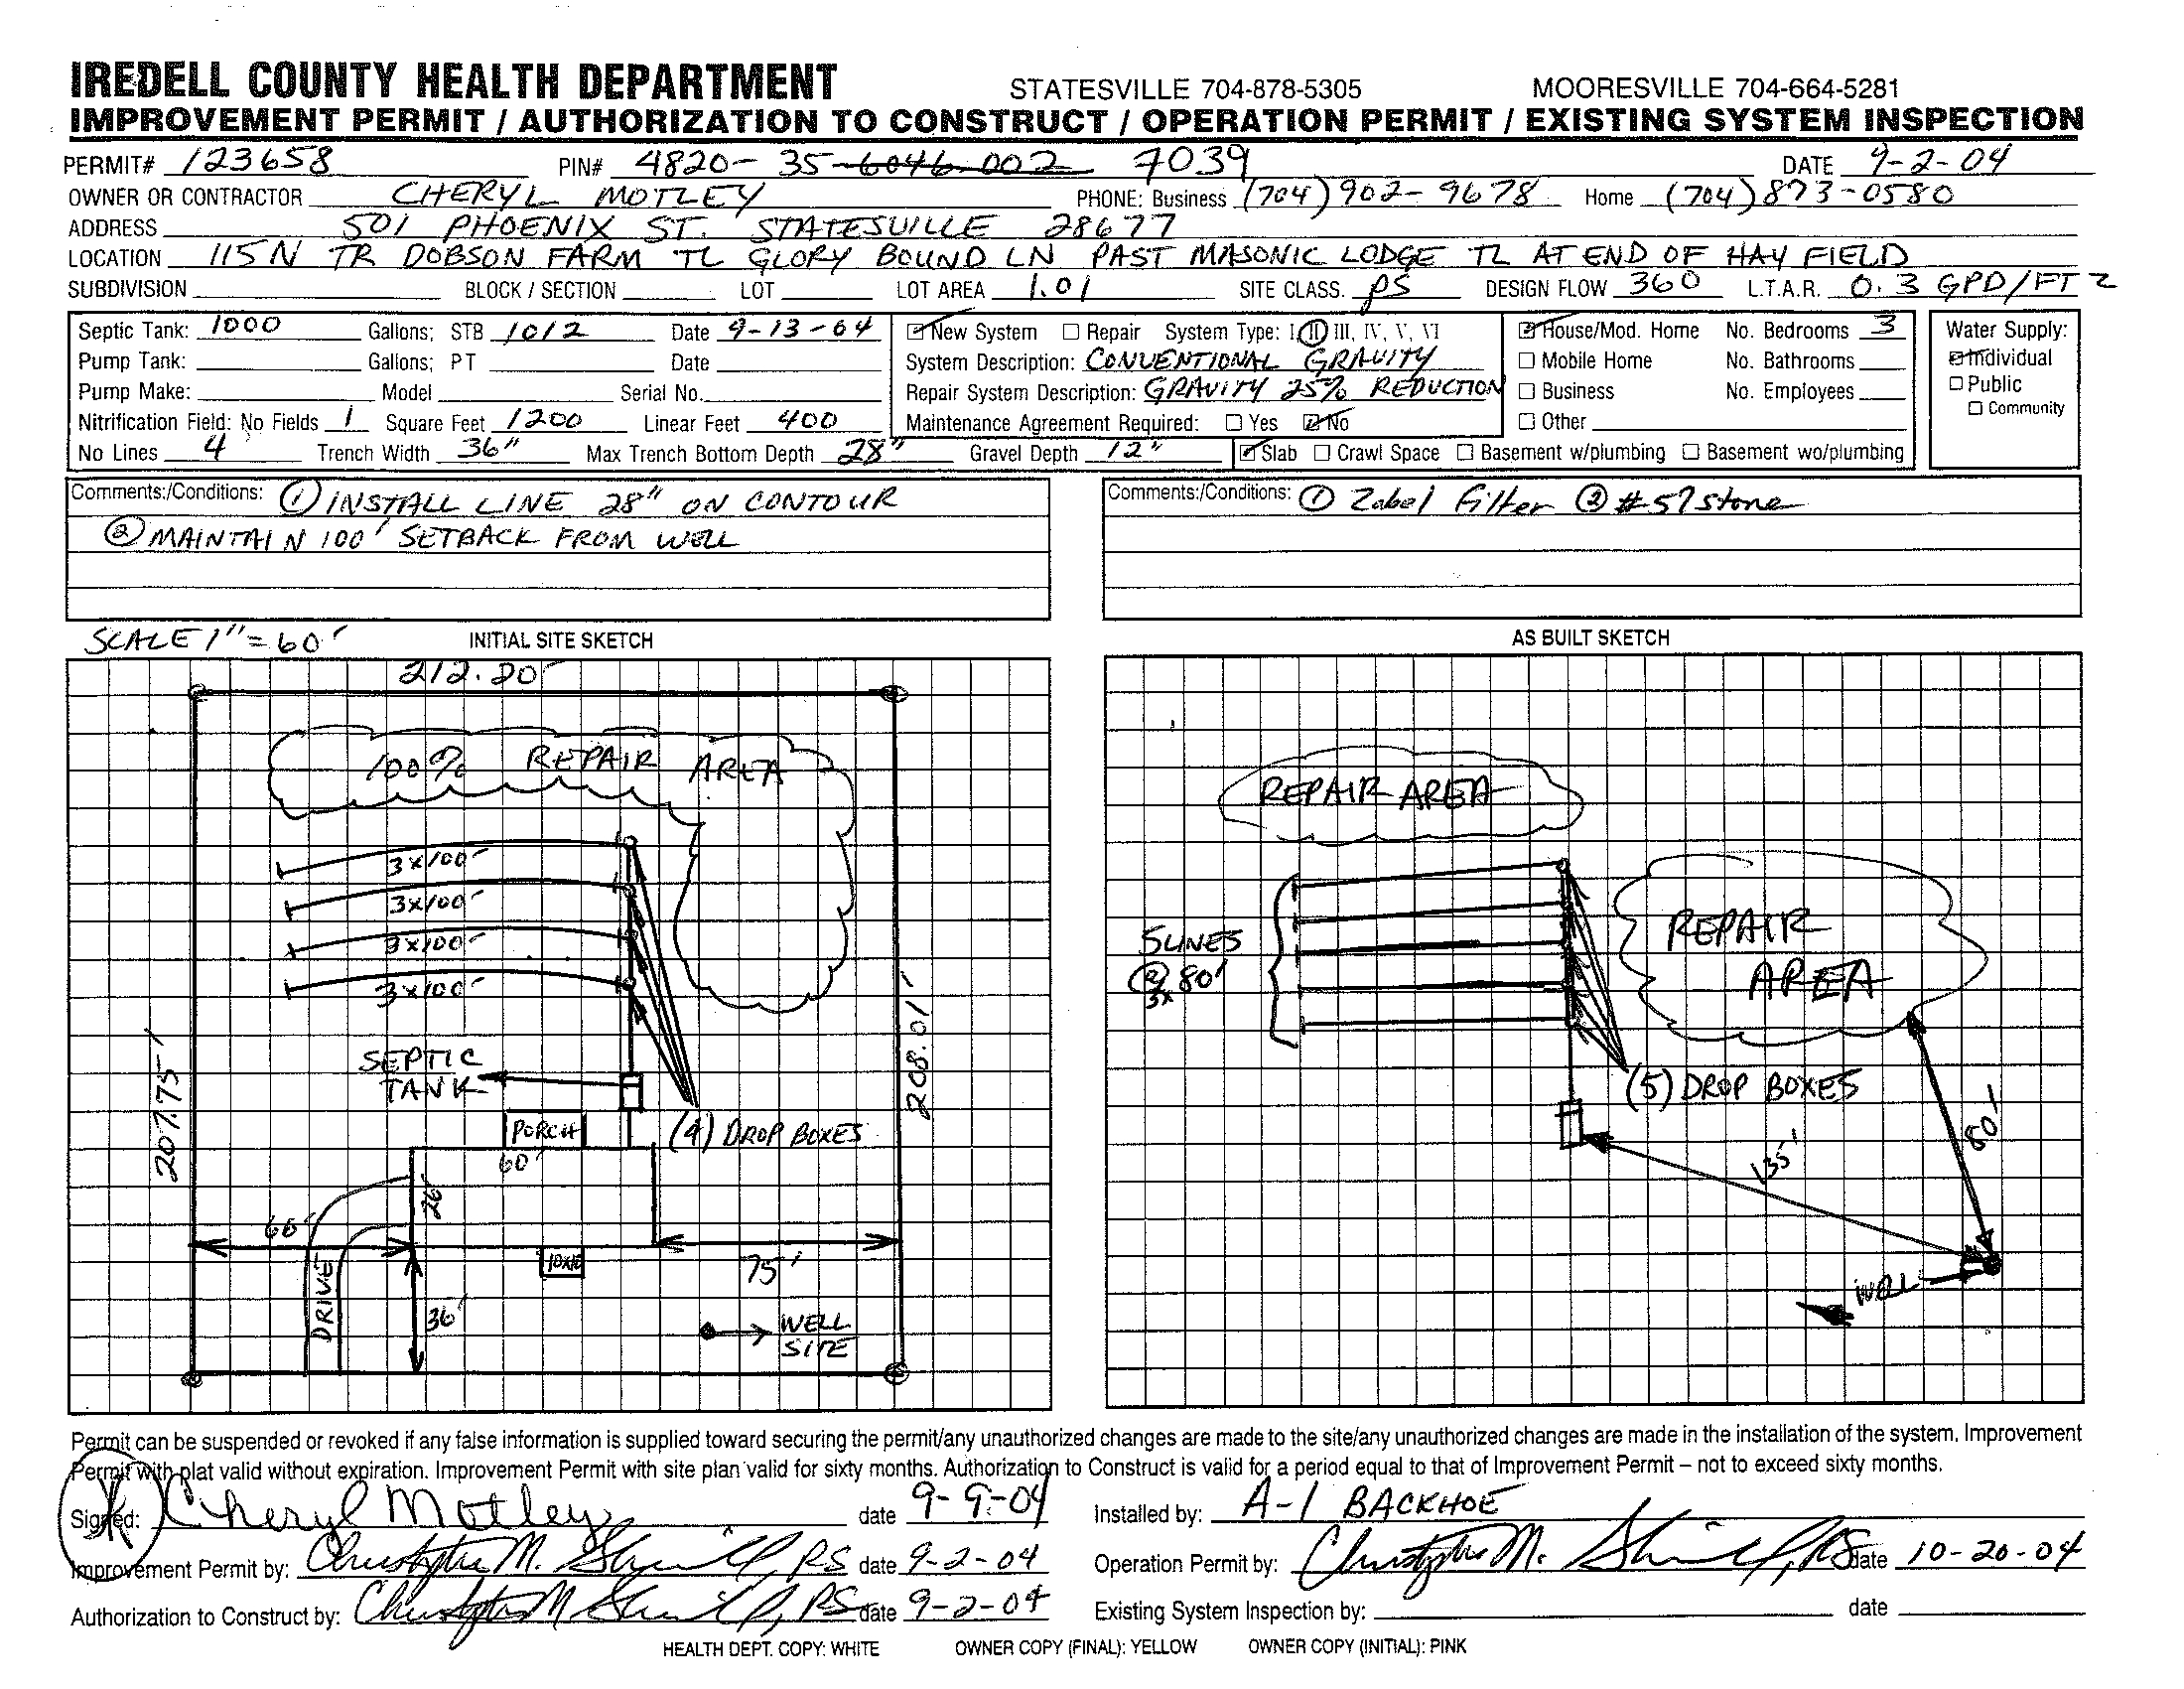 IREDELL COUNTY HEALTH DEPARTMENT STATESVILLE 704-878-5305 MOORESVILLE 704-664-5281
IMPROVEMENT PERMIT / AUTHORIZATION TO CONSTRUCT / OPERATION PERMIT / EXISTING SYSTEM INSPECTION
PERMIT# 123658 PIN# 4820-35-6046.002 7039 DATE 9-2-04
OWNER OR CONTRACTOR CHERYL MOTLEY PHONE: Business (704) 902-9678 Home (704) 873-0580
ADDRESS 501 PHOENIX ST. STATESVILLE 28677
LOCATION 115 N TR DOBSON FARM TL GLORY BOUND LN PAST MASONIC LODGE TL AT END OF HAY FIELD
SUBDIVISION BLOCK / SECTION LOT LOT AREA 1.01 SITE CLASS. PS DESIGN FLOW 360 L.T.A.R. 0.3 GPD/FT 2
Septic Tank: 1000 Gallons; STB 1012 Date 9-13-04 New System Repair System Type: I, II, III, IV, V, VI House/Mod. Home No. Bedrooms 3 Water Supply:
Pump Tank: Gallons; PT Date System Description: CONVENTIONAL GRAVITY Mobile Home No. Bathrooms Individual
Pump Make: Model Serial No. Repair System Description: GRAVITY 25% REDUCTION Business No. Employees Public
Nitrification Field: No Fields 1 Square Feet 1200 Linear Feet 400 Maintenance Agreement Required: Yes No Other Community
No Lines 4 Trench Width 36" Max Trench Bottom Depth 28" Gravel Depth 12" Slab Crawl Space Basement w/plumbing Basement wo/plumbing
Comments:/Conditions: ① INSTALL LINE 28" ON CONTOUR
② MAINTAIN 100' SETBACK FROM WELL
Comments:/Conditions: ① Zabel Filter ② #57 stone
SCALE 1" = 60' INITIAL SITE SKETCH
212.20'
100% REPAIR AREA
3x100'
3x100'
3x100'
3x100'
SEPTIC
TANK
207.75'
208.01'
PORCH
(4) DROP BOXES
60'
26'
60'
75'
10x10
DRIVE
36'
WELL
SITE
AS BUILT SKETCH
REPAIR AREA
REPAIR
AREA
5 LINES
@ 80'
3x
(5) DROP BOXES
135'
80'
WELL
Permit can be suspended or revoked if any false information is supplied toward securing the permit/any unauthorized changes are made to the site/any unauthorized changes are made in the installation of the system. Improvement
Permit with plat valid without expiration. Improvement Permit with site plan valid for sixty months. Authorization to Construct is valid for a period equal to that of Improvement Permit – not to exceed sixty months.
Signed: Cheryl Motley date 9-9-04 Installed by: A-1 BACKHOE
Improvement Permit by: Christopher M. RS date 9-2-04 Operation Permit by: Christopher M. RS date 10-20-04
Authorization to Construct by: Christopher M RS date 9-2-04 Existing System Inspection by: date
HEALTH DEPT. COPY: WHITE OWNER COPY (FINAL): YELLOW OWNER COPY (INITIAL): PINK